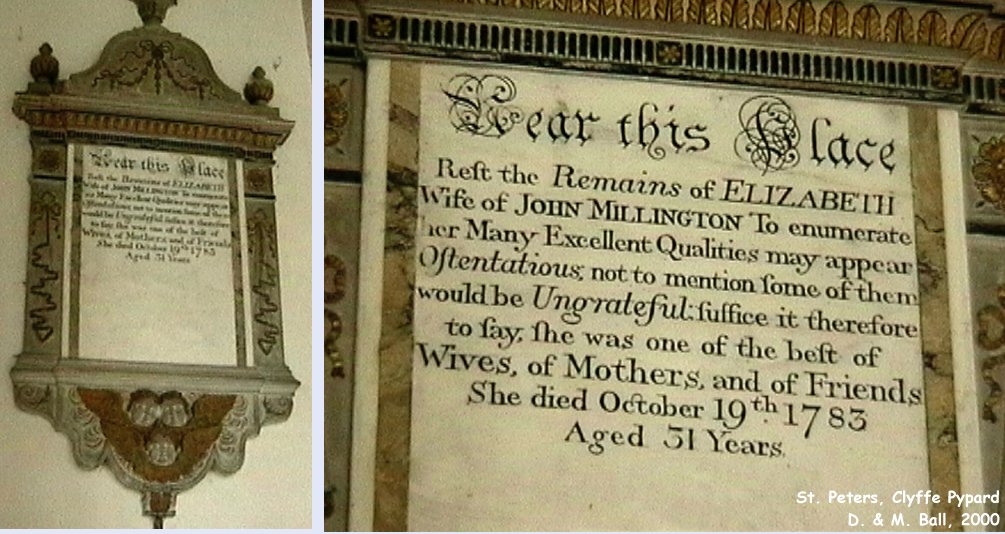 Near this Place
Reſt the Remains of ELIZABETH
Wife of JOHN MILLINGTON To enumerate
her Many Excellent Qualities may appear
Oſtentatious, not to mention ſome of them
would be Ungrateful: ſuffice it therefore
to ſay, ſhe was one of the beſt of
Wives, of Mothers, and of Friends
She died October 19th 1783
Aged 31 Years
Near this Place
Reſt the Remains of ELIZABETH
Wife of JOHN MILLINGTON To enumerate
her Many Excellent Qualities may appear
Oſtentatious, not to mention ſome of them
would be Ungrateful: ſuffice it therefore
to ſay, ſhe was one of the beſt of
Wives, of Mothers, and of Friends
She died October 19th. 1783
Aged 31 Years.
St. Peters, Clyffe Pypard
D. & M. Ball, 2000